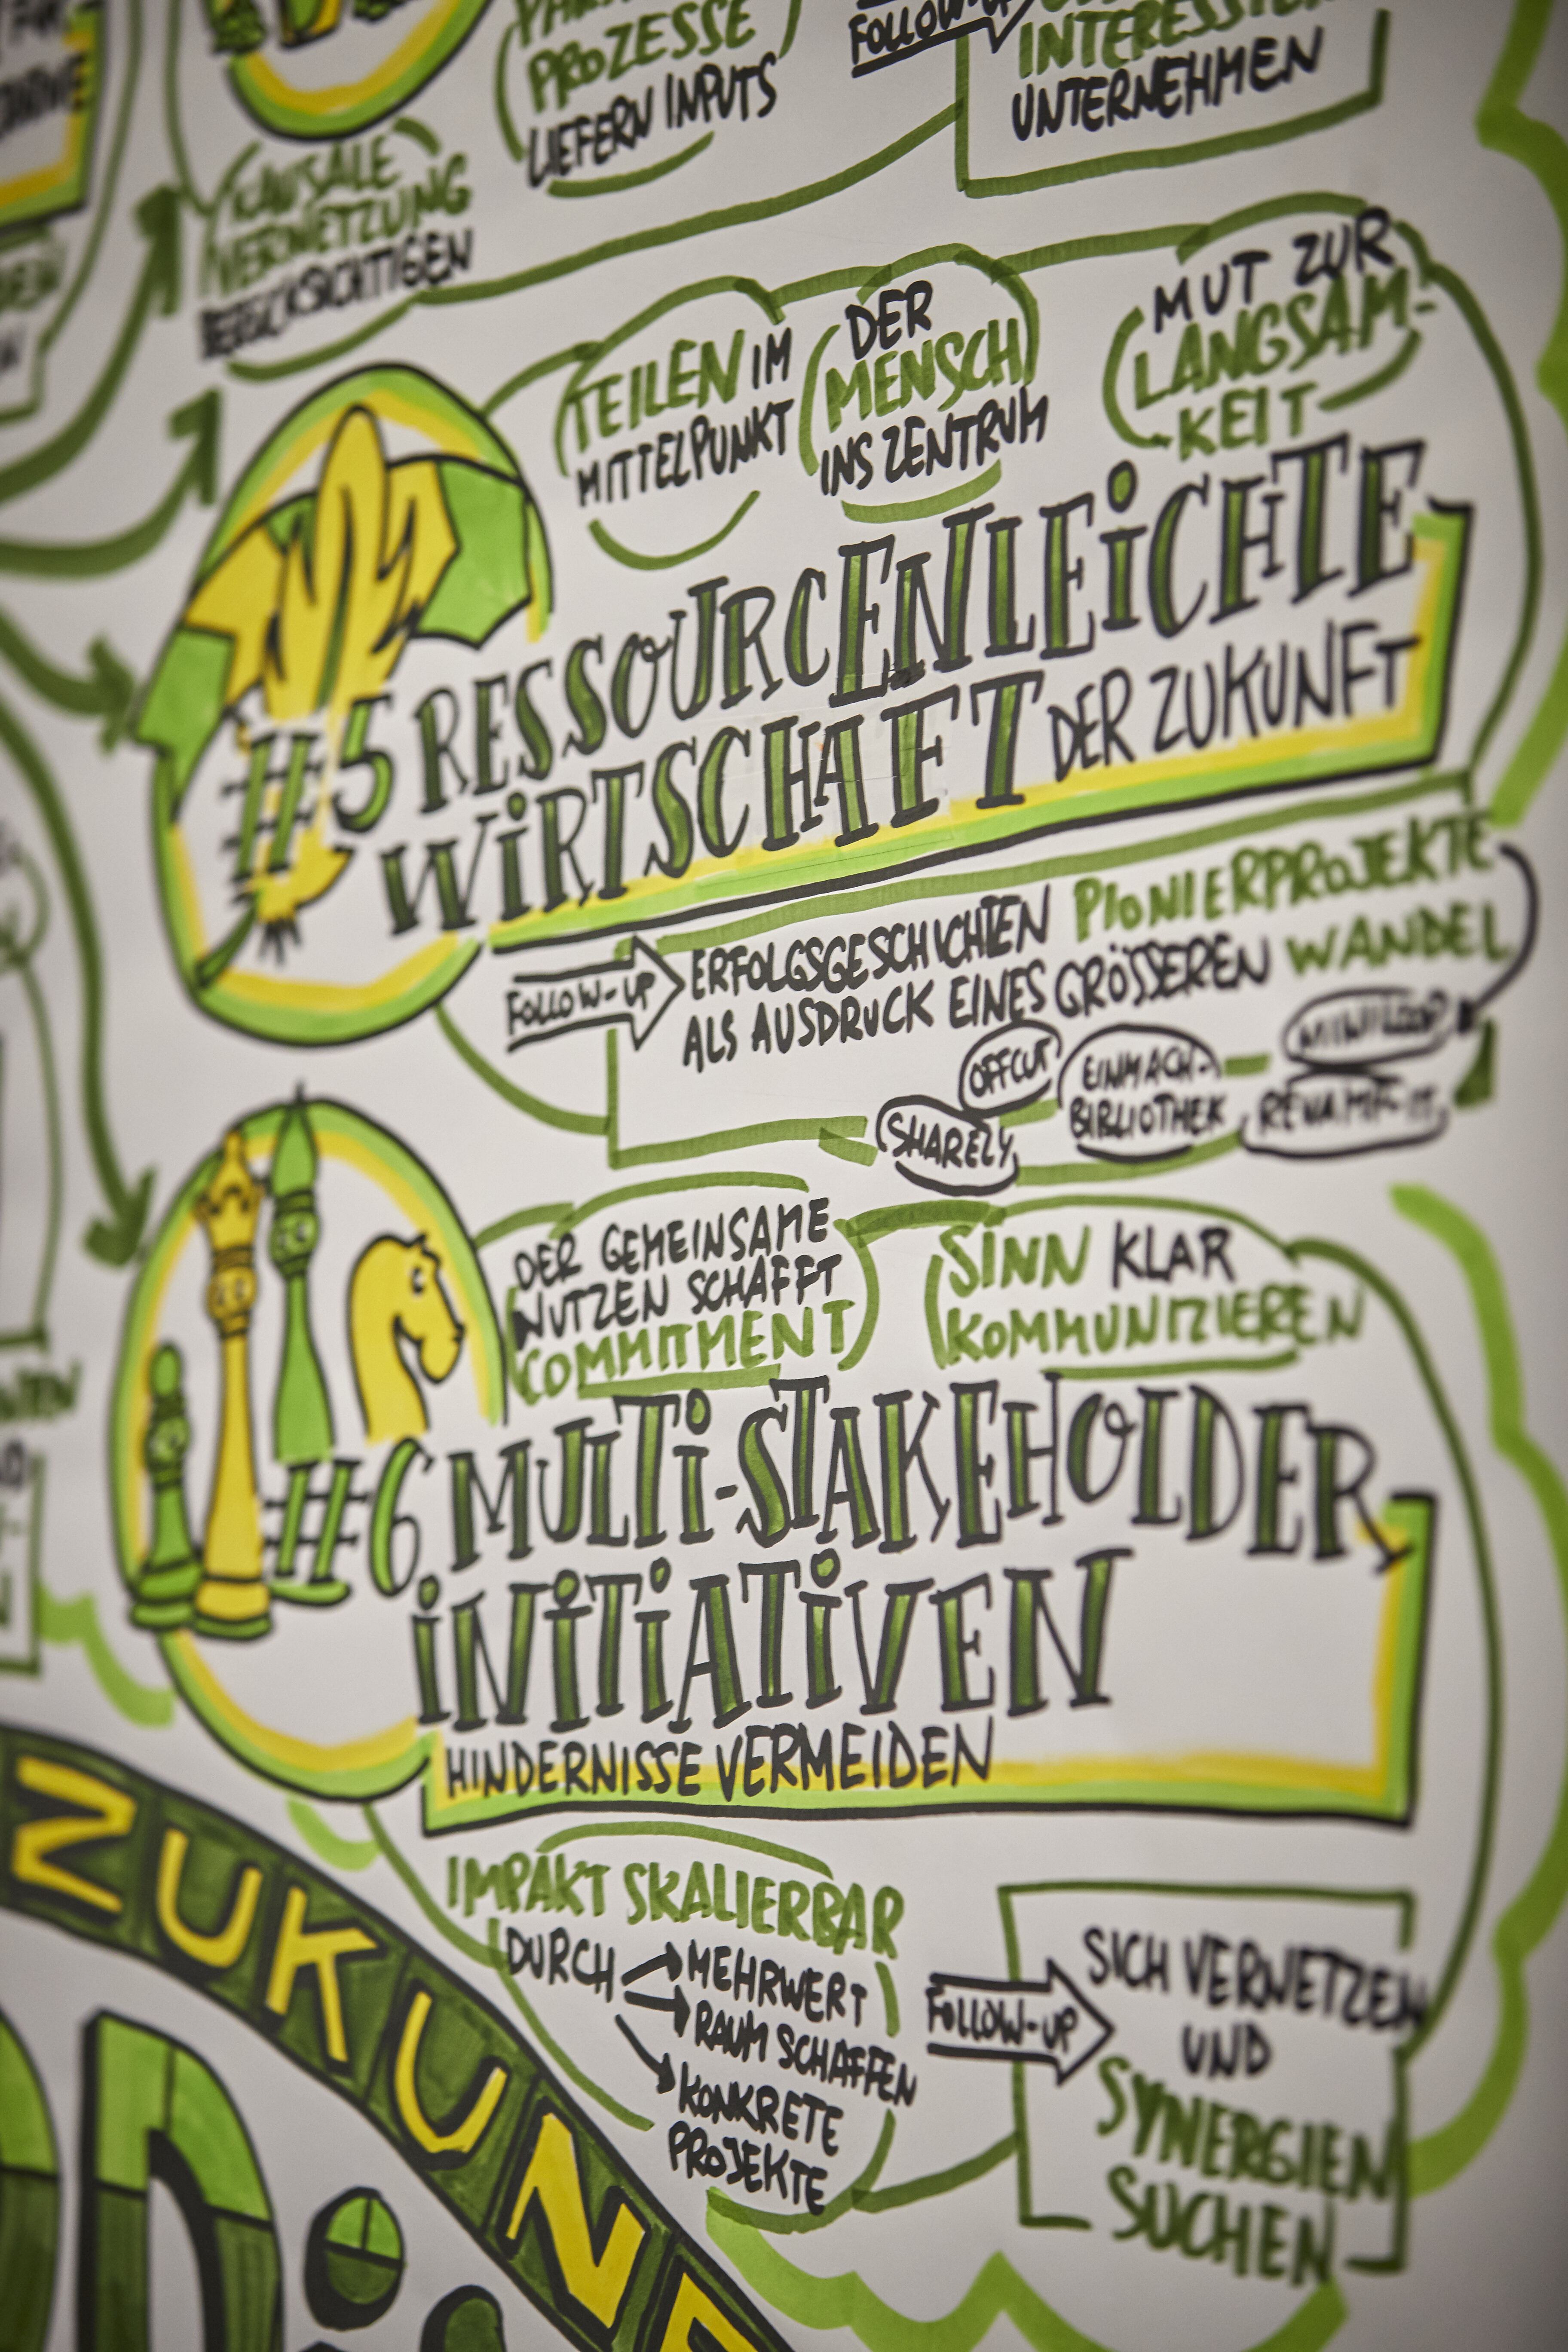 PROZESSE
LIEFERN INPUTS
FOLLOW-UP
UNTERNEHMEN
KAUSALE
VERNETZUNG
BERÜCKSICHTIGEN
TEILEN IM
MITTELPUNKT
DER
MENSCH
INS ZENTRUM
MUT ZUR
LANGSAM-
KEIT
#5 RESSOURCENLEICHTE
WIRTSCHAFT DER ZUKUNFT
FOLLOW-UP
ERFOLGSGESCHICHTEN PIONIERPROJEKTE
ALS AUSDRUCK EINES GRÖSSEREN WANDEL
OFFCUT
SHARELY
EINMACH-
BIBLIOTHEK
MINILOOP
REVAMP-IT
DER GEMEINSAME
NUTZEN SCHAFFT
COMMITMENT
SINN KLAR
KOMMUNIZIEREN
#6 MULTI-STAKEHOLDER
INITIATIVEN
HINDERNISSE VERMEIDEN
IMPAKT SKALIERBAR
DURCH
MEHRWERT
RAUM SCHAFFEN
KONKRETE
PROJEKTE
FOLLOW-UP
SICH VERNETZEN
UND
SYNERGIEN
SUCHEN
ZUKUNF